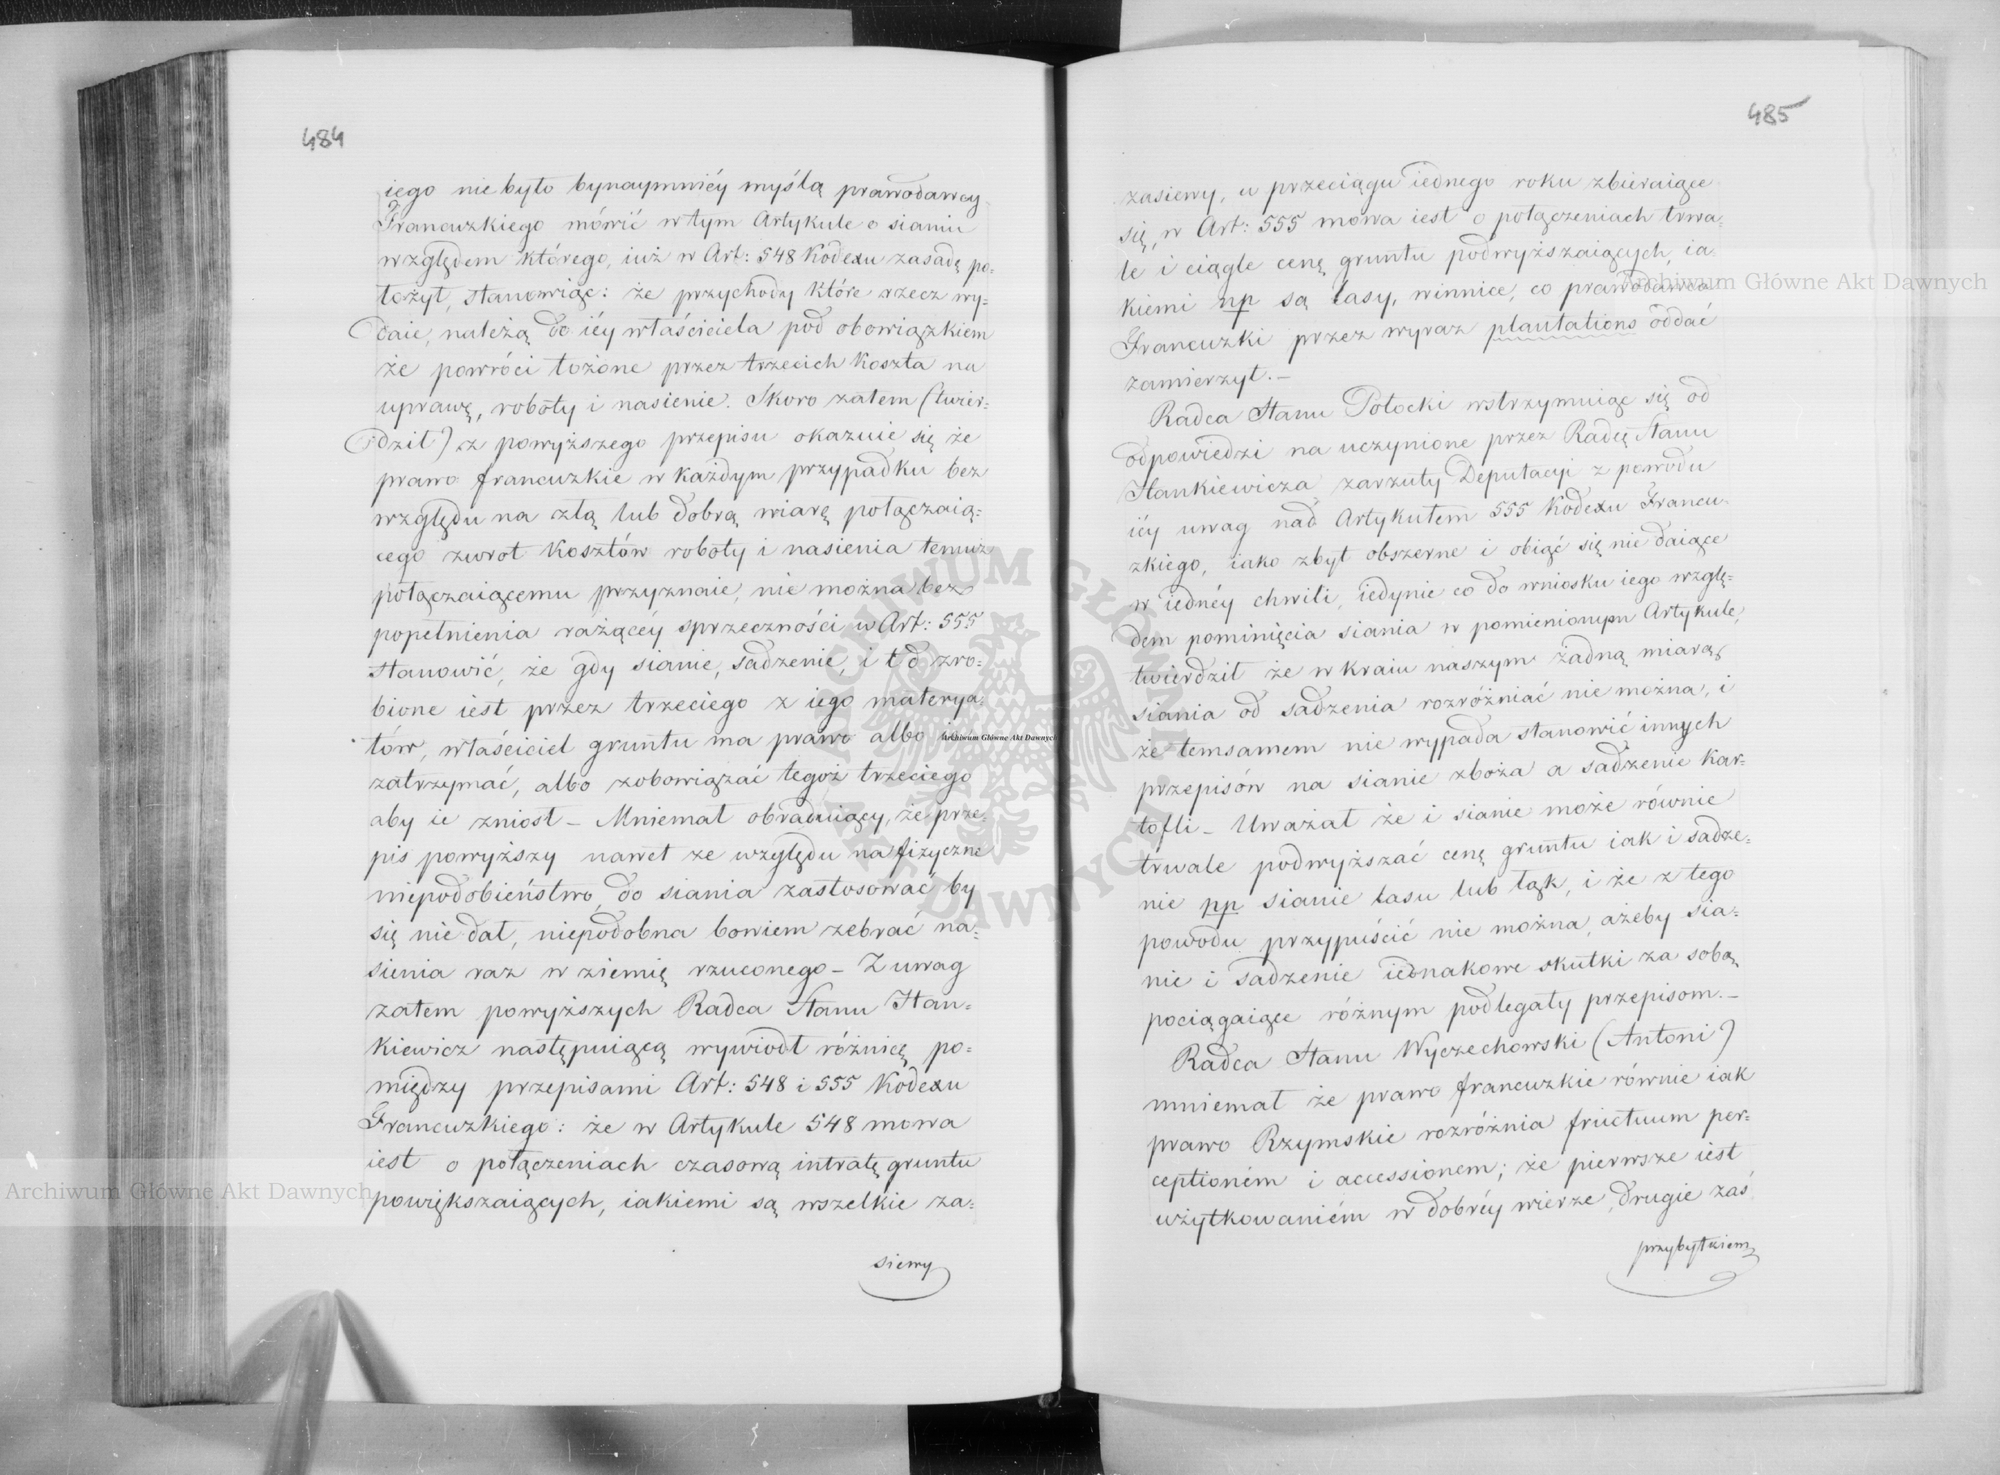 484
iego nie było bynaymniéy myślą prawodawcy
Francuzkiego mówić w tym Artykule o sianiu
względem którego, iuż w Art: 548 Kodexu zasadę po-
łożył, stanowiąc: że przychody które rzecz wy-
daie, należą do iéy właściciela pod obowiązkiem
że powróci łożone przez trzecich koszta na
uprawę, roboty i nasienie. Skoro zatem (twier-
dził) z powyższego przepisu okazuie się że
prawo francuzkie w każdym przypadku bez
względu na złą lub dobrą wiarę połączaią-
cego zwrot kosztów roboty i nasienia temuż
połączaiącemu przyznaie, nie można bez
popełnienia rażącéy sprzeczności, w Art: 555
stanowić, że gdy sianie, sadzenie, i t d zro-
bione iest przez trzeciego z iego materya-
łów, właściciel gruntu ma prawo albo
zatrzymać, albo zobowiązać tegoż trzeciego
aby ie zniosł – Mniemał obraduiący, że prze-
pis powyższy nawet ze względu na fizyczne
niepodobieństwo, do siania zastosować by
się nie dał, niepodobna bowiem zebrać na-
sienia raz w ziemię rzuconego – Z uwag
zatem powyższych Radca Stanu Han-
kiewicz następuiącą wywiodł różnicę po-
między przepisami Art: 548 i 555 Kodexu
Francuzkiego: że w Artykule 548 mowa
iest o połączeniach czasową intratę gruntu
powiększaiących, iakiemi są wszelkie za-
siewy
485
zasiewy, w przeciągu iednego roku zbieraiące
się, w Art: 555 mowa iest o połączeniach trwa-
le i ciągle cenę gruntu podwyższaiących, ia-
kiemi np są lasy, winnice, co prawodawca
Francuzki przez wyraz plantations oddać
zamierzył. –
Radca Stanu Potocki wstrzymuiąc się od
odpowiedzi na uczynione przez Radcę Stanu
Hankiewicza zarzuty Deputacyi z powodu
iéy uwag nad Artykułem 555 Kodexu Francu-
zkiego, iako zbyt obszerne i obiąć się nie daiące
w iednéy chwili, iedynie co do wniosku iego wzglę-
dem pominięcia siania w pomienionym Artykule,
twierdził że w kraiu naszym żadną miarą
siania od sadzenia rozróżniać nie można, i
że temsamem nie wypada stanowić innych
przepisów na sianie zboża a sadzenie kar-
tofli – Uważał że i sianie może równie
trwale podwyższać cenę gruntu iak i sadze-
nie np sianie lasu lub łąk, i że z tego
powodu przypuścić nie można, ażeby sia-
nie i sadzenie iednakowe skutki za sobą
pociągaiące różnym podlegały przepisom. –
Radca Stanu Wyczechowski (Antoni)
mniemał że prawo francuzkie równie iak
prawo Rzymskie rozróżnia fructuum per-
ceptioném i accessionem; że pierwsze iest
użytkowaniém w dobréy wierze, drugie zaś
przybytkiem
Archiwum Główne Akt Dawnych
Archiwum Główne Akt Dawnych
Archiwum Główne Akt Dawnych
ARCHIWUM GŁÓWNE AKT DAWNYCH